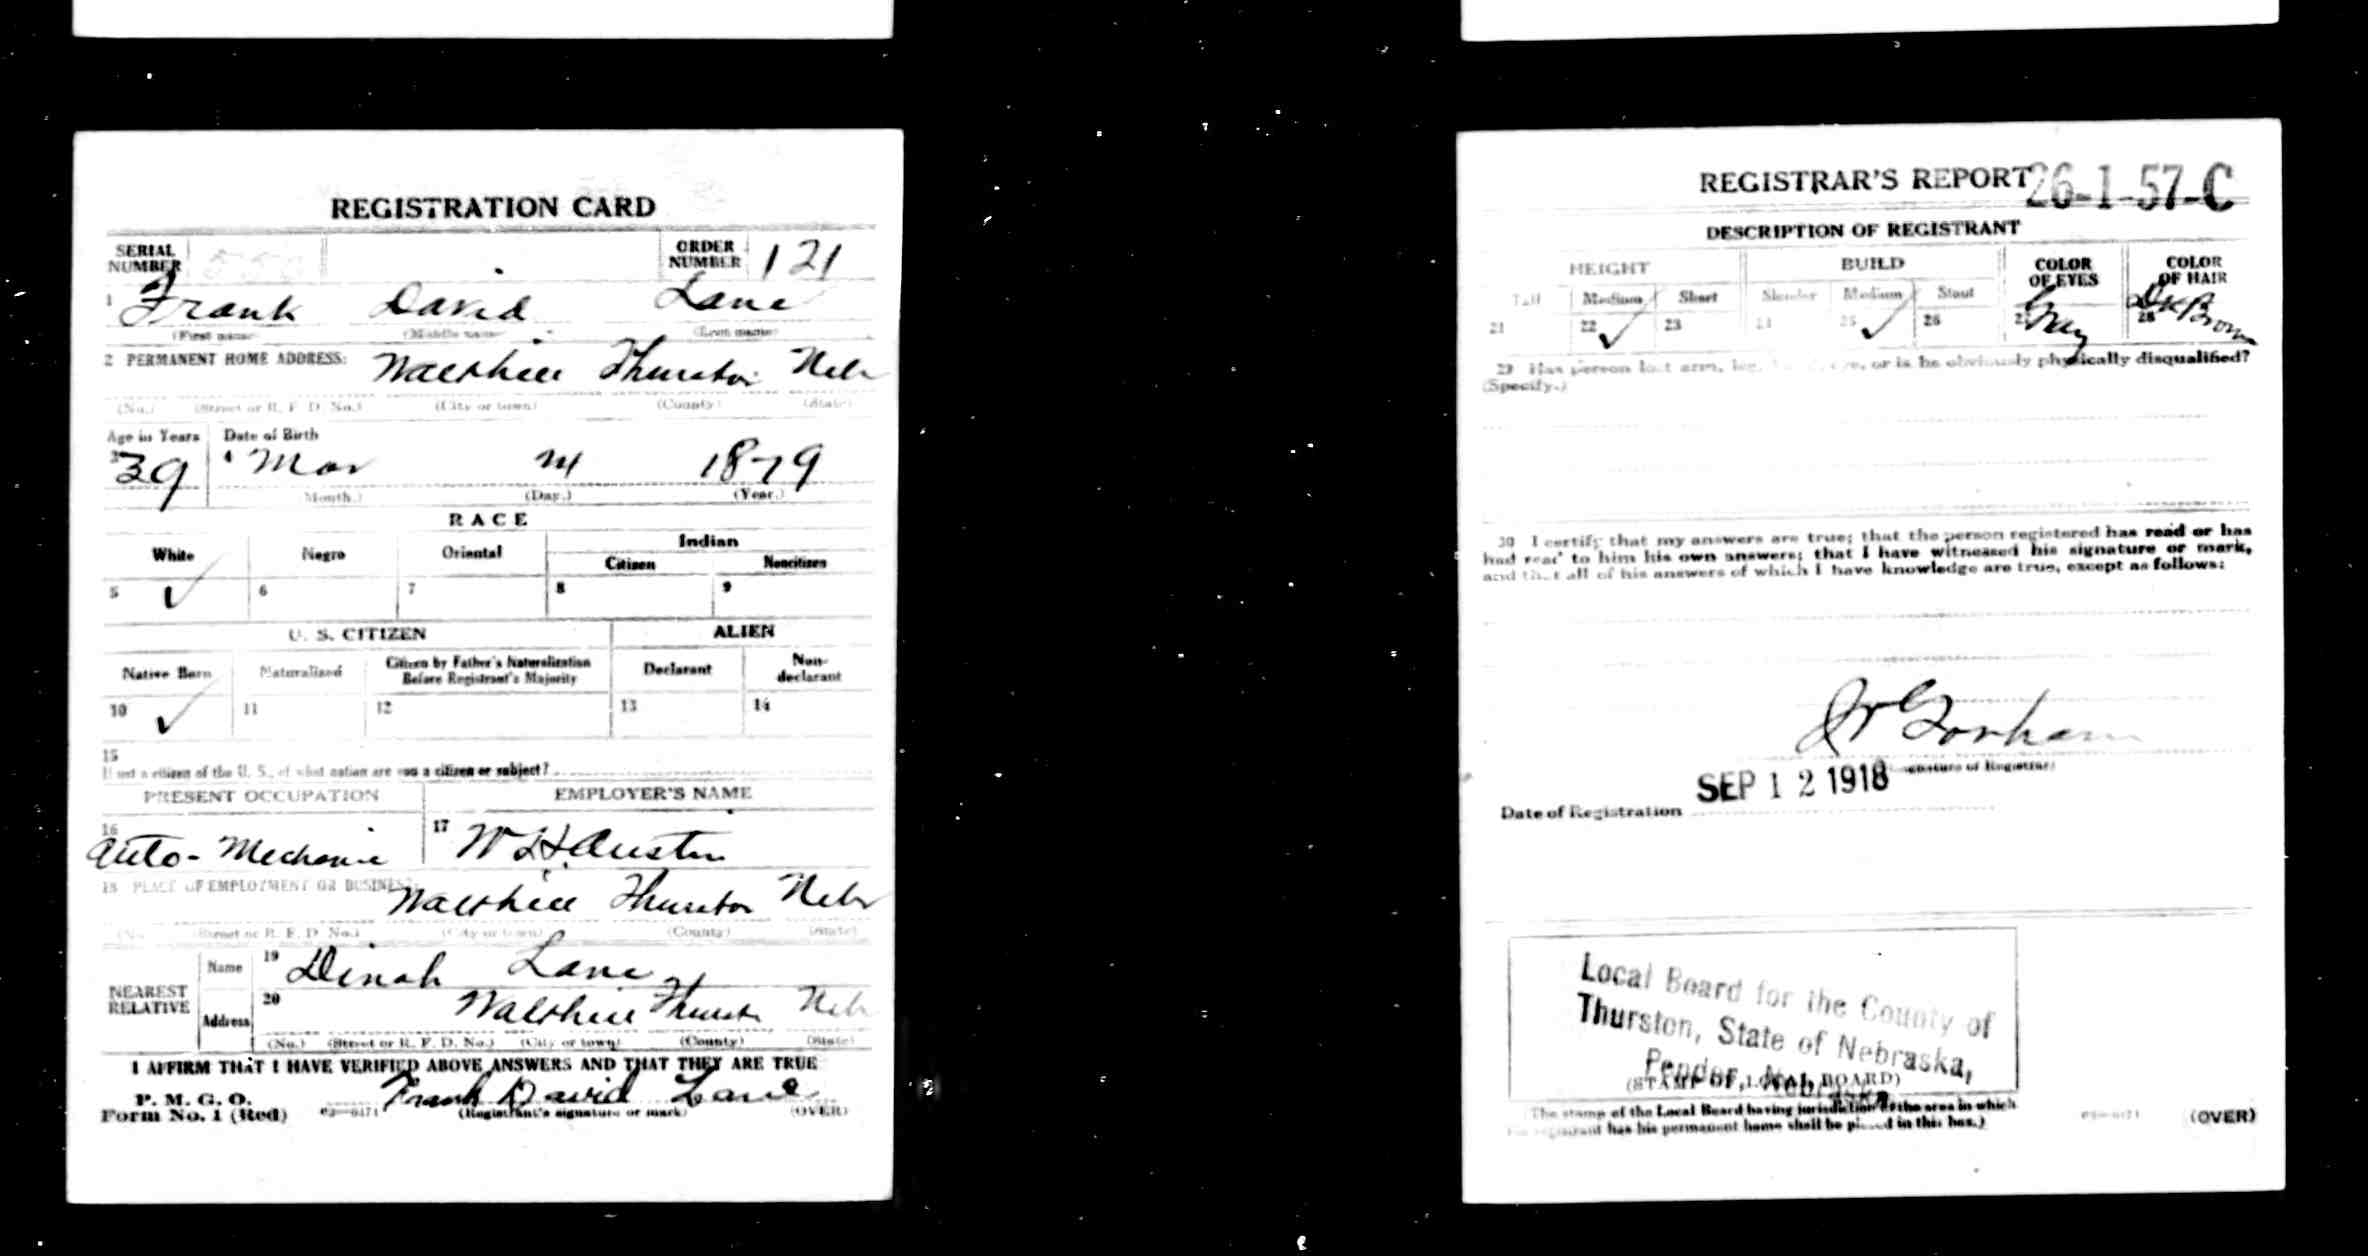 REGISTRATION CARD
SERIAL NUMBER
ORDER NUMBER 121
1 Frank David Lane
(First name) (Middle name) (Last name)
2 PERMANENT HOME ADDRESS: Walthill Thurston Nebr
(No.) (Street or R. F. D. No.) (City or town) (County) (State)
Age in Years Date of Birth
3 39 4 Mar 1879
(Month.) (Day.) (Year.)
RACE
White Negro Oriental Indian
Citizen Noncitizen
5 ✓ 6 7 8 9
U. S. CITIZEN ALIEN
Native Born Naturalized Citizen by Father's Naturalization Before Registrant's Majority Declarant Non-declarant
10 ✓ 11 12 13 14
15
If not a citizen of the U. S., of what nation are you a citizen or subject?
PRESENT OCCUPATION EMPLOYER'S NAME
16 Auto-Mechanic 17 W H Austin
18 PLACE OF EMPLOYMENT OR BUSINESS:
Walthill Thurston Nebr
(No.) (Street or R. F. D. No.) (City or town) (County) (State)
NEAREST RELATIVE
Name 19 Dinah Lane
Address 20 Walthill Thurston Nebr
(No.) (Street or R. F. D. No.) (City or town) (County) (State)
I AFFIRM THAT I HAVE VERIFIED ABOVE ANSWERS AND THAT THEY ARE TRUE
P. M. G. O.
Form No. 1 (Red) Frank David Lane
(Registrant's signature or mark) (OVER)
REGISTRAR'S REPORT 26-1-57-C
DESCRIPTION OF REGISTRANT
HEIGHT BUILD COLOR OF EYES COLOR OF HAIR
Tall Medium Short Slender Medium Stout
21 22 ✓ 23 24 25 ✓ 26 27 Gray 28 Dk Brown
29 Has person lost arm, leg, eye, or is he obviously physically disqualified?
(Specify.)
30 I certify that my answers are true; that the person registered has read or has
had read to him his own answers; that I have witnessed his signature or mark,
and that all of his answers of which I have knowledge are true, except as follows:
Gorham
(Signature of Registrar)
Date of Registration SEP 12 1918
Local Board for the County of
Thurston, State of Nebraska,
Pender, Nebraska
(STAMP OF LOCAL BOARD)
(The stamp of the Local Board having jurisdiction of the area in which
the registrant has his permanent home shall be placed in this box.)
(OVER)